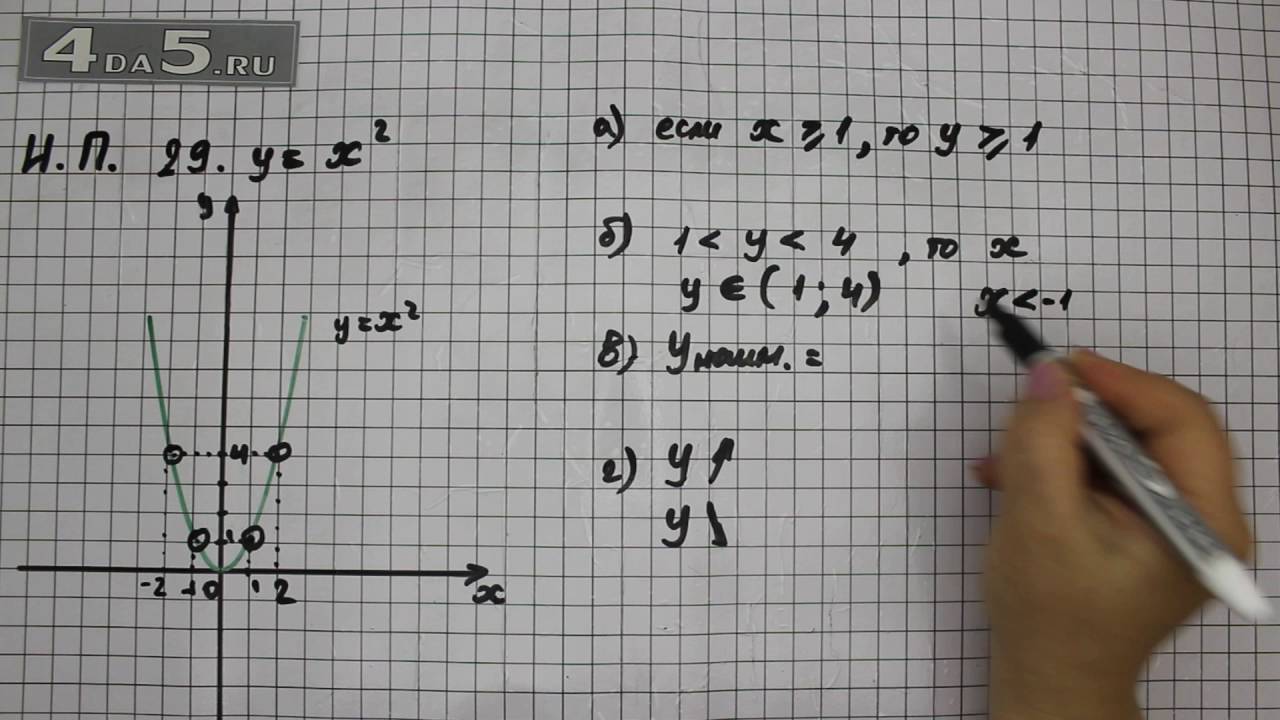 4DA5.RU
И.П. 29. y = x²
y
y = x²
4
1
-2 -1 0 1 2
x
а) если x ⩾ 1, то y ⩾ 1
б) 1 < y < 4, то x
y ∈ (1; 4) x < -1
в) y наим. =
г) y ↑
y ↓